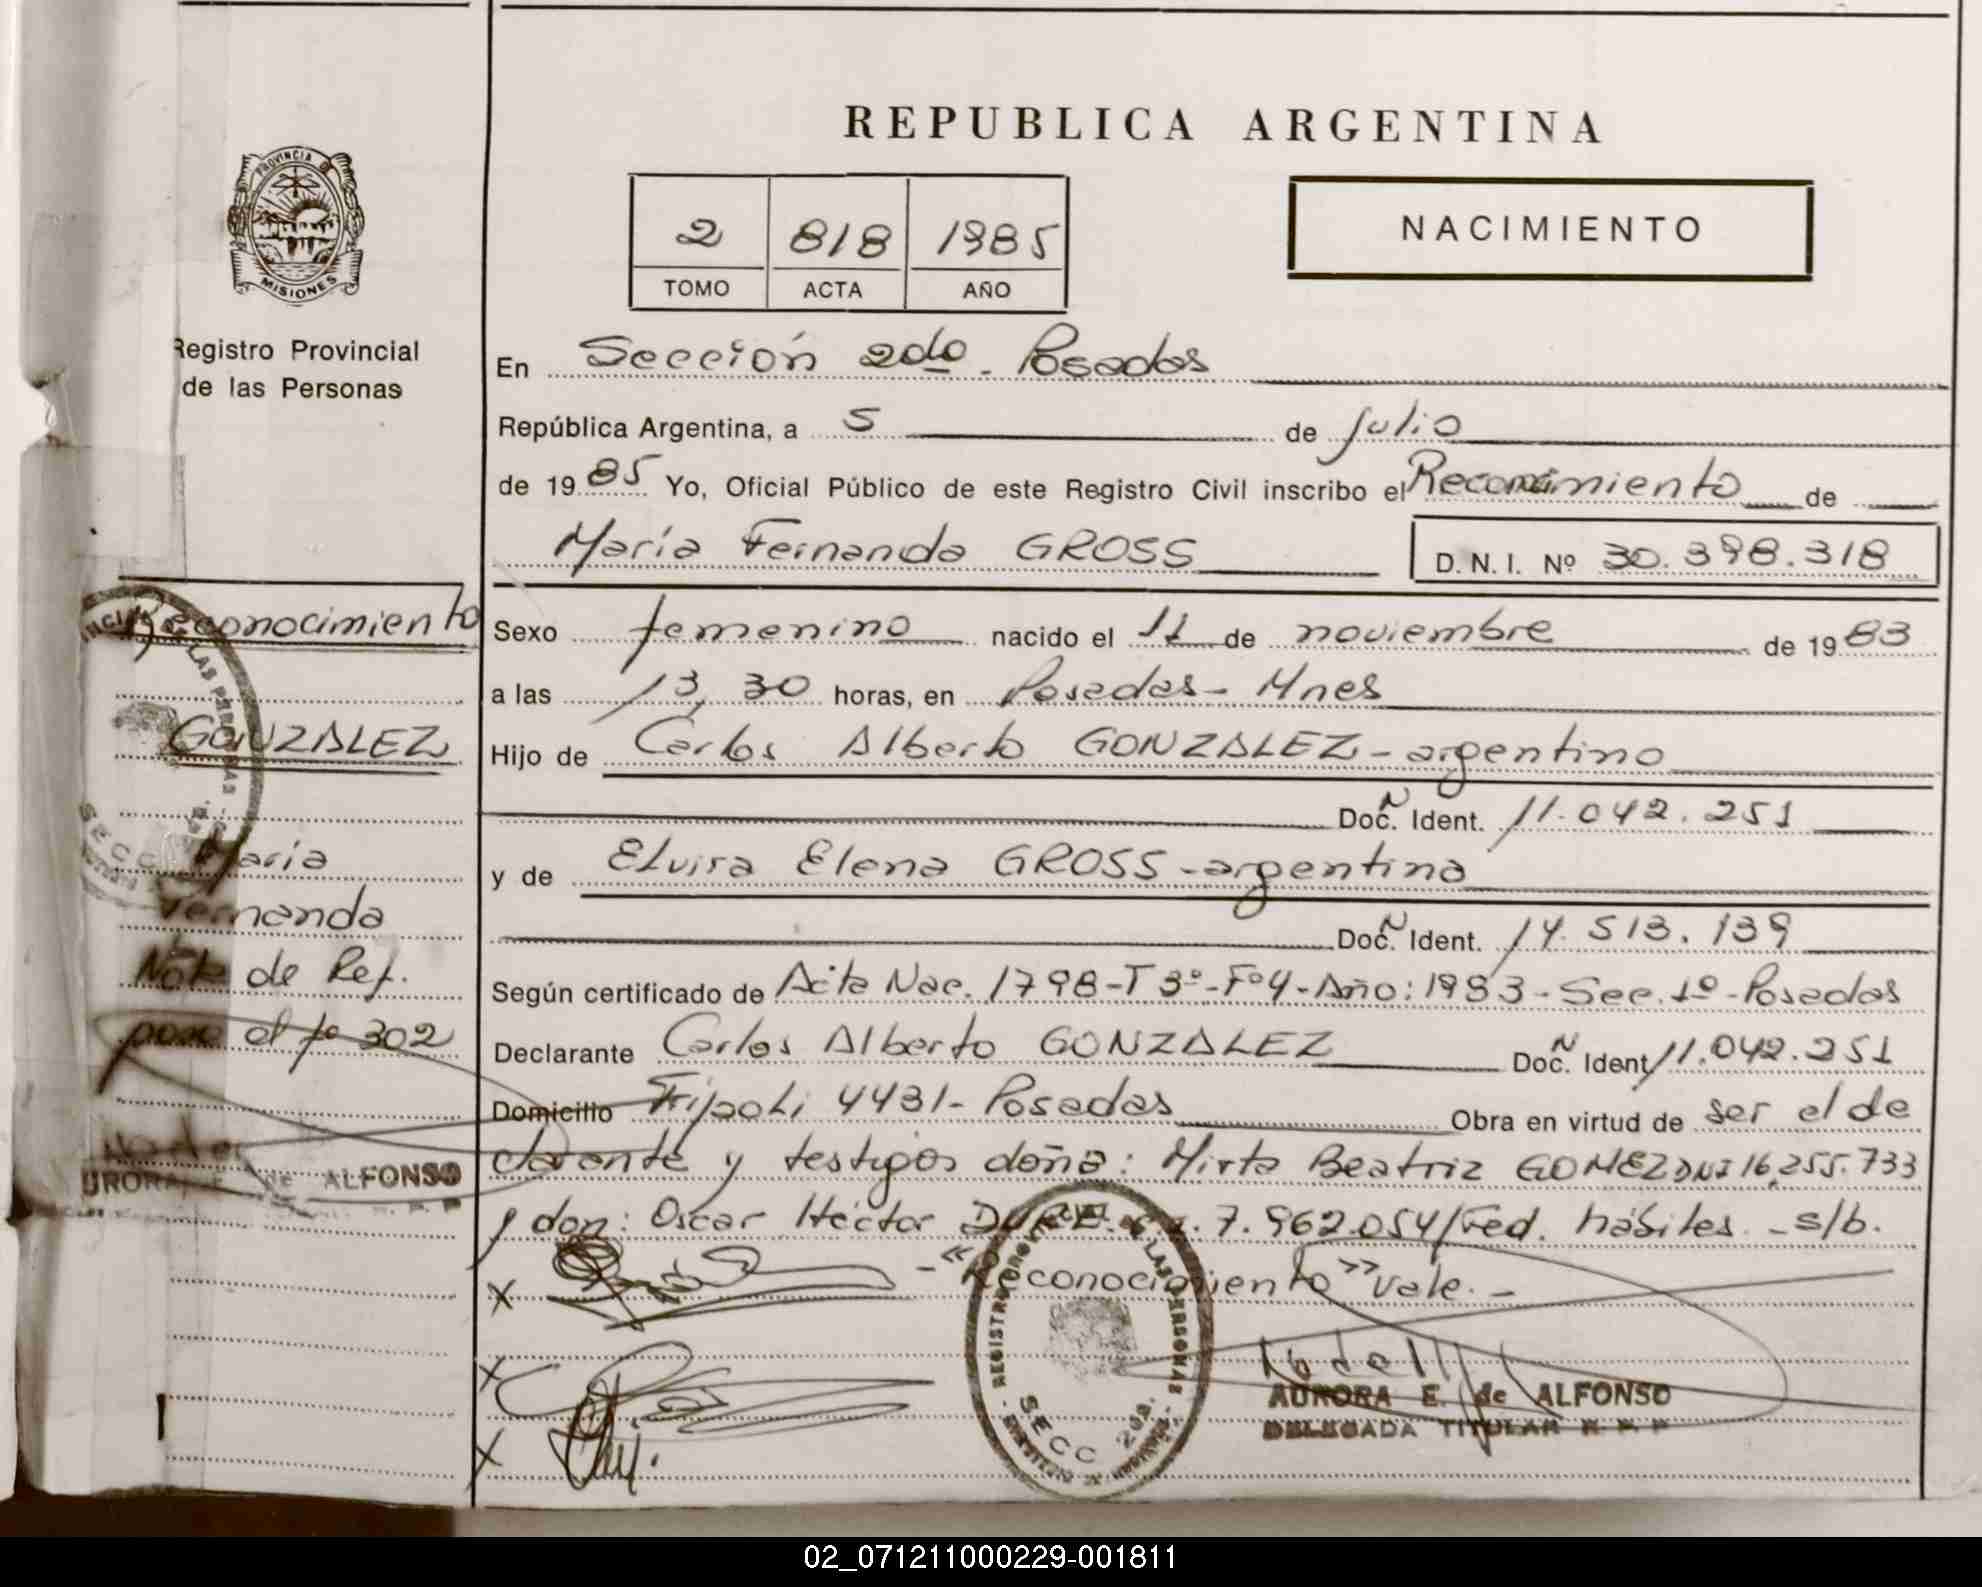 REPUBLICA ARGENTINA
PROVINCIA DE
MISIONES
Registro Provincial
de las Personas
2 818 1985
TOMO ACTA AÑO
NACIMIENTO
En Sección 2da. Posadas
República Argentina, a 5 de julio
de 1985 Yo, Oficial Público de este Registro Civil inscribo el Reconocimiento de
María Fernanda GROSS
D. N. I. Nº 30.398.318
Sexo femenino nacido el 11 de noviembre de 1983
a las 13,30 horas, en Posadas - Mnes
Hijo de Carlos Alberto GONZALEZ - argentino
Doc. Ident. 11.042.251
y de Elvira Elena GROSS - argentina
Doc. Ident. 14.513.139
Según certificado de Acta Nac. 1798 - T 3º - Fº 4 - Año: 1983 - Sec. 1º - Posadas
Declarante Carlos Alberto GONZALEZ Doc. Ident. 11.042.251
Domicilio Tripoli 4431 - Posadas Obra en virtud de ser el de
clarante y testigos doña: Mirta Beatriz GOMEZ DNI 16.255.733
y don: Oscar Héctor 7.962.054/Fed. hábiles - s/b.
- "Reconocimiento" vale. -
X
X
X
REGISTRO PROVINCIAL DE LAS PERSONAS
SECC 2da.
AURORA E. de ALFONSO
DELEGADA TITULAR R. P. P.
Reconocimiento
GONZALEZ
María
Fernanda
Nota de Ref.
pasa al fº 302
AURORA E. de ALFONSO
02_071211000229-001811